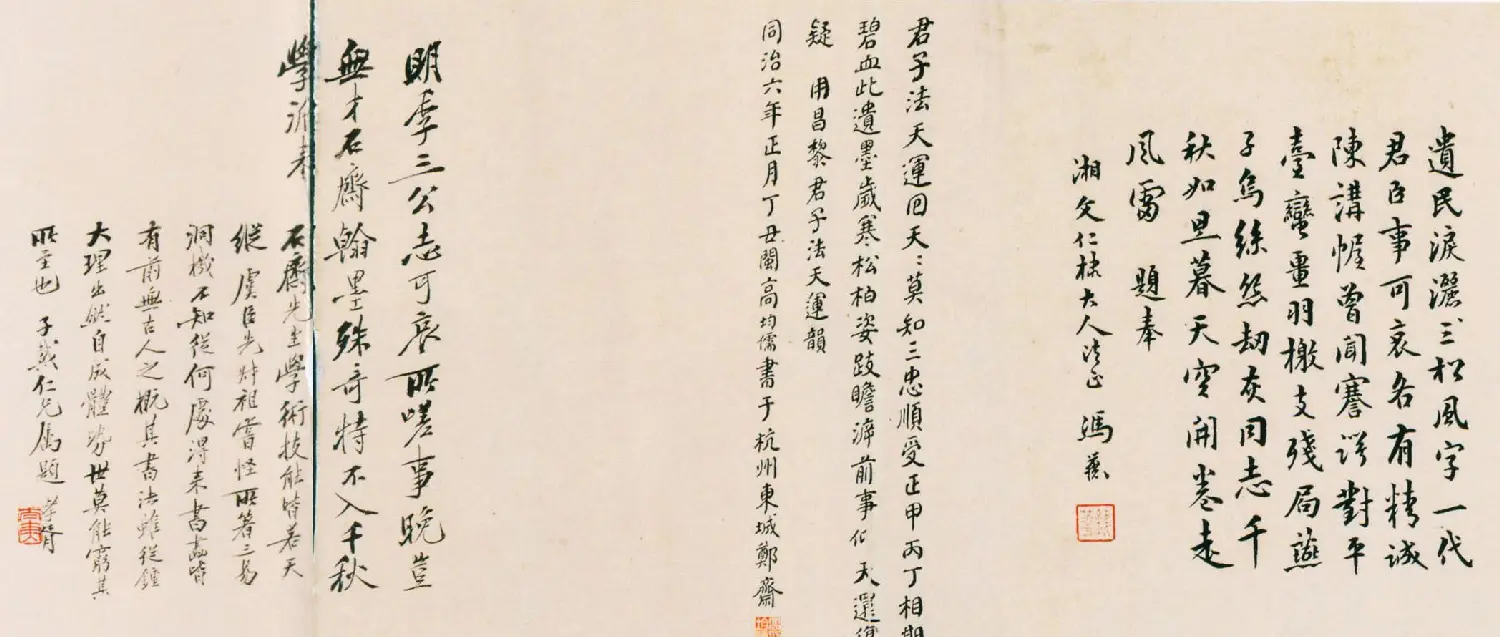 遺民淚灑三松風字一代
君臣事可哀各有精誠
陳講幄曾聞謇諤對平
臺蠻畺羽檄支殘局燕
子烏絲劫灰同志千
秋如旦暮天空開卷走
風雷 題奉
湘文仁棣大人清正 馮
君子法天運回天〻莫知三忠順受正甲丙丁相期
碧血此遺墨歲寒松柏姿跂瞻前事化天還
疑 用昌黎君子法天運韻
同治六年正月丁丑閩高均儒書于杭州東城鄭齋
明季三公志可哀所嗟事晚豈
無才石齋翰墨殊奇特不入千秋
學派來
石齋先生學術技能皆若天
縱 虞臣先叔祖嘗怪所著三易
洞璣不知從何處得來書畵皆
有前無古人之概其書法雖從鍾
大理出然自成體勢世莫能窮其
所至也 子仁兄屬題